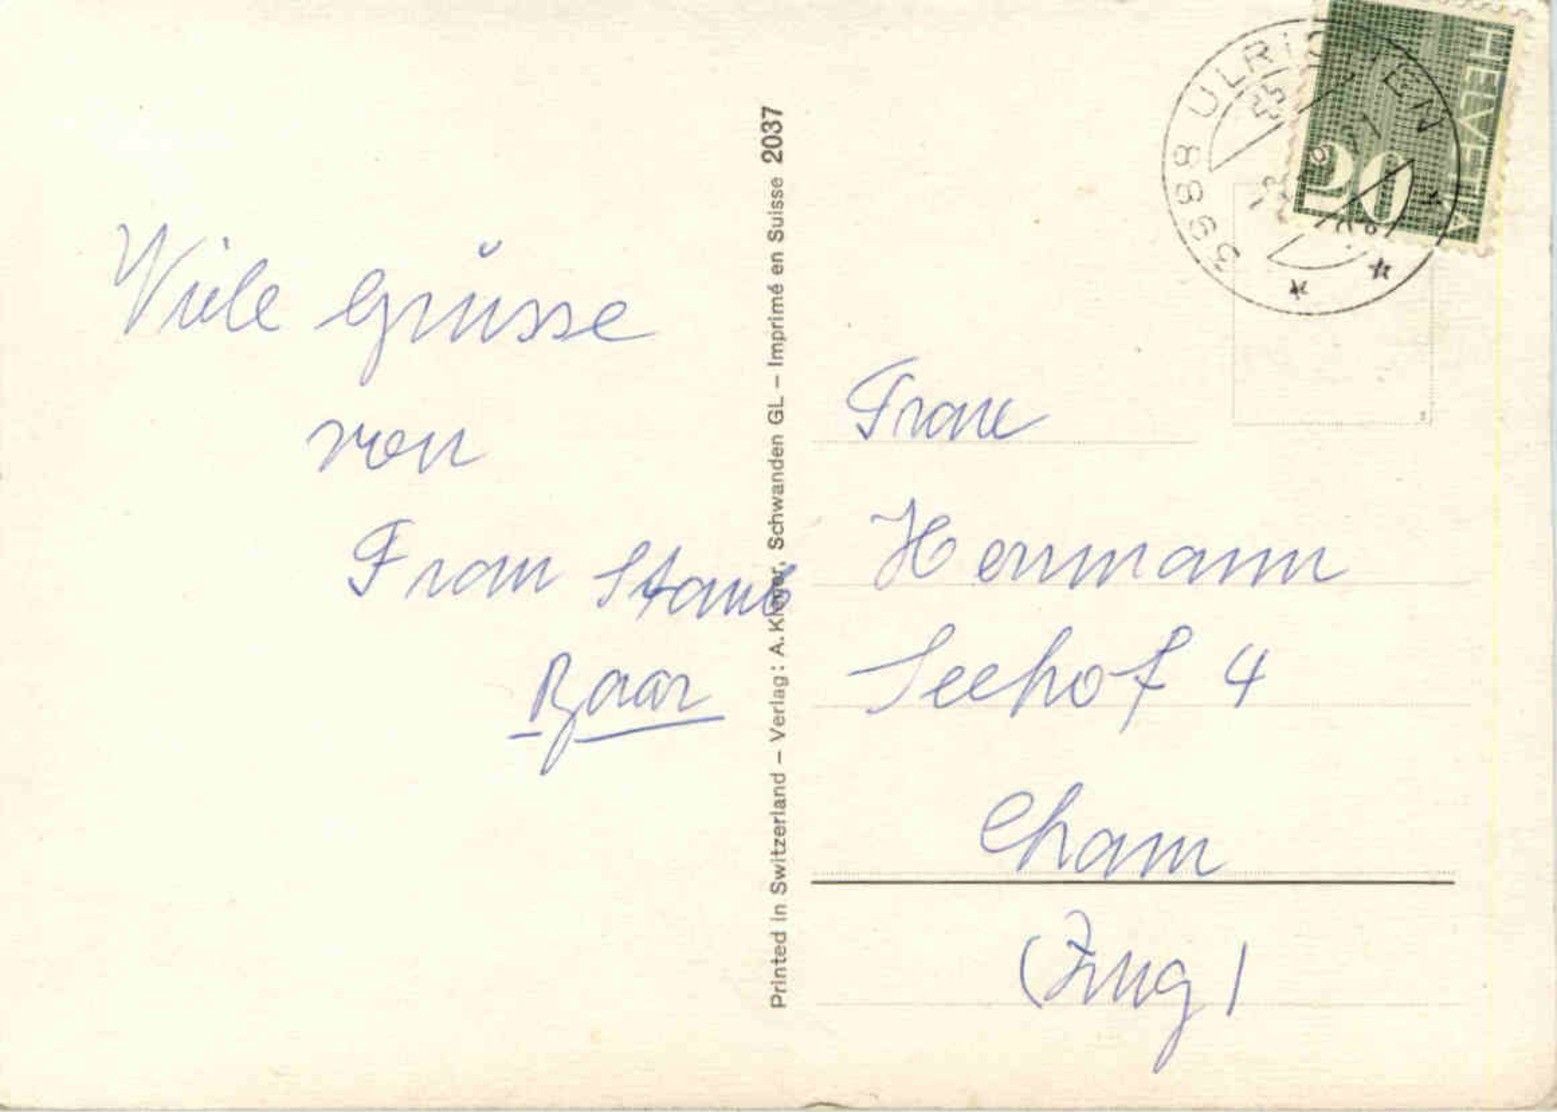 Viele Grüsse
von
Frau Staub
Baar
Printed in Switzerland – Verlag: A. Klöger, Schwanden GL – Imprimé en Suisse 2037
3988 ULRICHEN
HELVETIA
20
Frau
Hermann
Seehof 4
Cham
(Zug)